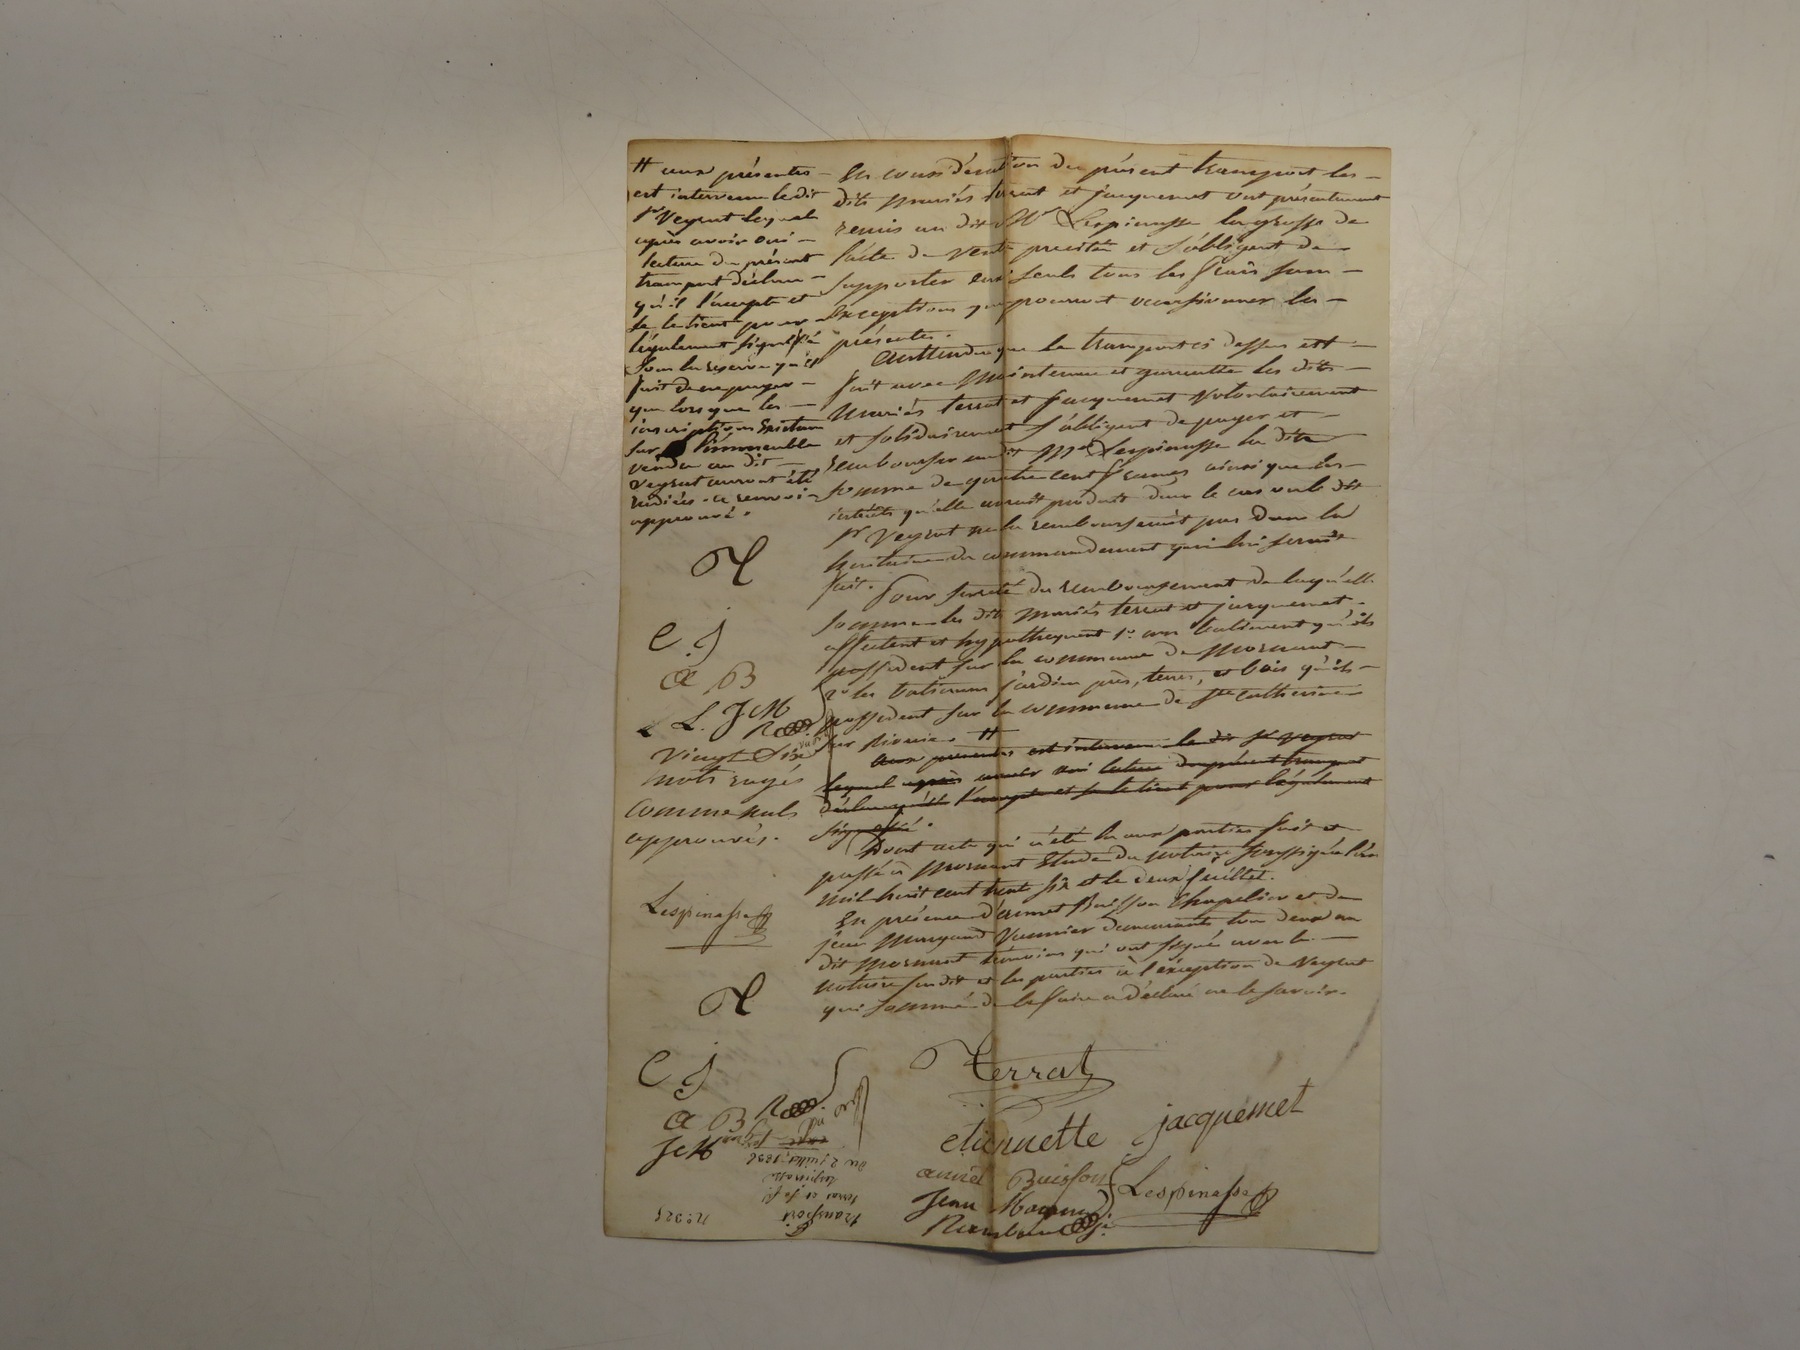 # aux présentes
est intervenu le dit
sr Veyrat lequel
après avoir oui
lecture du présent
transport déclare
qu'il l'accepte et
se le tient pour
légalement signifié
sous la reserve qu'il
fait de ne payer
que lorsque les
inscriptions Existan
sur l'immeuble
vendu au dit
Veyrat auront été
radiées. ce renvoi
approuvé.
En considération du présent transport les
dits mariés terrat et jacquemet ont présentement
remis au dit Mr Lespinasse la grosse de
l'acte de vente précité et s'obligent de
supporter eux seuls tous les frais sans
exceptions que pourront occasionner les
présentes.
attendu que le transport ci dessus est
fait avec maintenue et garantie les dits
mariés terrat et jacquemet volontairement
et solidairement s'obligent de payer et
rembourser au dit Mr Lespinasse la dite
somme de quatre cent francs ainsi que les
intérêts qu'elle aurait produit dans le cas ou le dit
sr Veyrat ne la rembourserait pas dans la
huitaine du commandement qui lui serait
fait.
Pour sureté du remboursement de laquelle
somme les dits mariés terrat et jacquemet
affectent et hypothequent 1° un batiment qu'ils
possedent sur la commune de Mornant
2° les batiments jardin près, terres, et bois qu'ils
possedent sur la commune de Ste catherine
sur Riverie. #
aux présentes est intervenu le dit sr Veyrat
lequel après avoir oui lecture du présent transport
déclare qu'il l'accepte et se le tient pour légalement
signifié.
Dont acte qui a été lu aux parties fait et
passé à Mornant Etude du notaire soussigné l'an
mil huit cent trente six et le deux juillet.
En présence d'aimé Buisson Chapelier et de
jean Mornand Vannier demeurants tous deux au
dit Mornant témoins qui ont signé avec le
notaire susdit et les parties à l'exception de Veyrat
qui sommé de le faire a déclaré ne le savoir.
C. J
a B
L. J M
Vingt Six
mots rayés
comme nuls
approuvés.
Lespinasse
C J
a B
J M
Terrat
etiennette jacquemet
aimé Buisson Lespinasse
Jean
transport
terrat et
Lespinasse
du 2 juillet 1836
N° 325